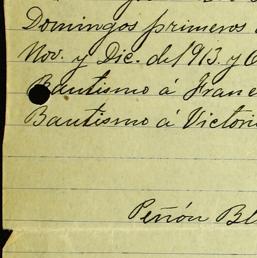 Domingos primeros
Nov. y Dic. del 913. y
Bautismo á Franc
Bautismo á Victori
Peñón Bl